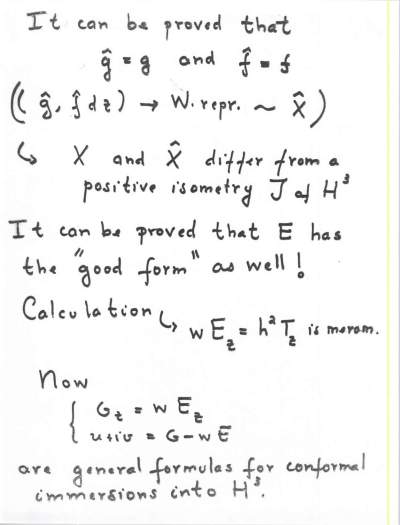 It can be proved that
ĝ = g and f̂ = f
((ĝ, f̂dz) → W. repr. ~ X̂)
↳ X and X̂ differ from a
positive isometry J of H³
It can be proved that E has
the "good form" as well!
Calculation ↳ wE_z = h²T_z is merom.
Now
{ G_z = w E_z
u+iv = G-wE
are general formulas for conformal
immersions into H³.